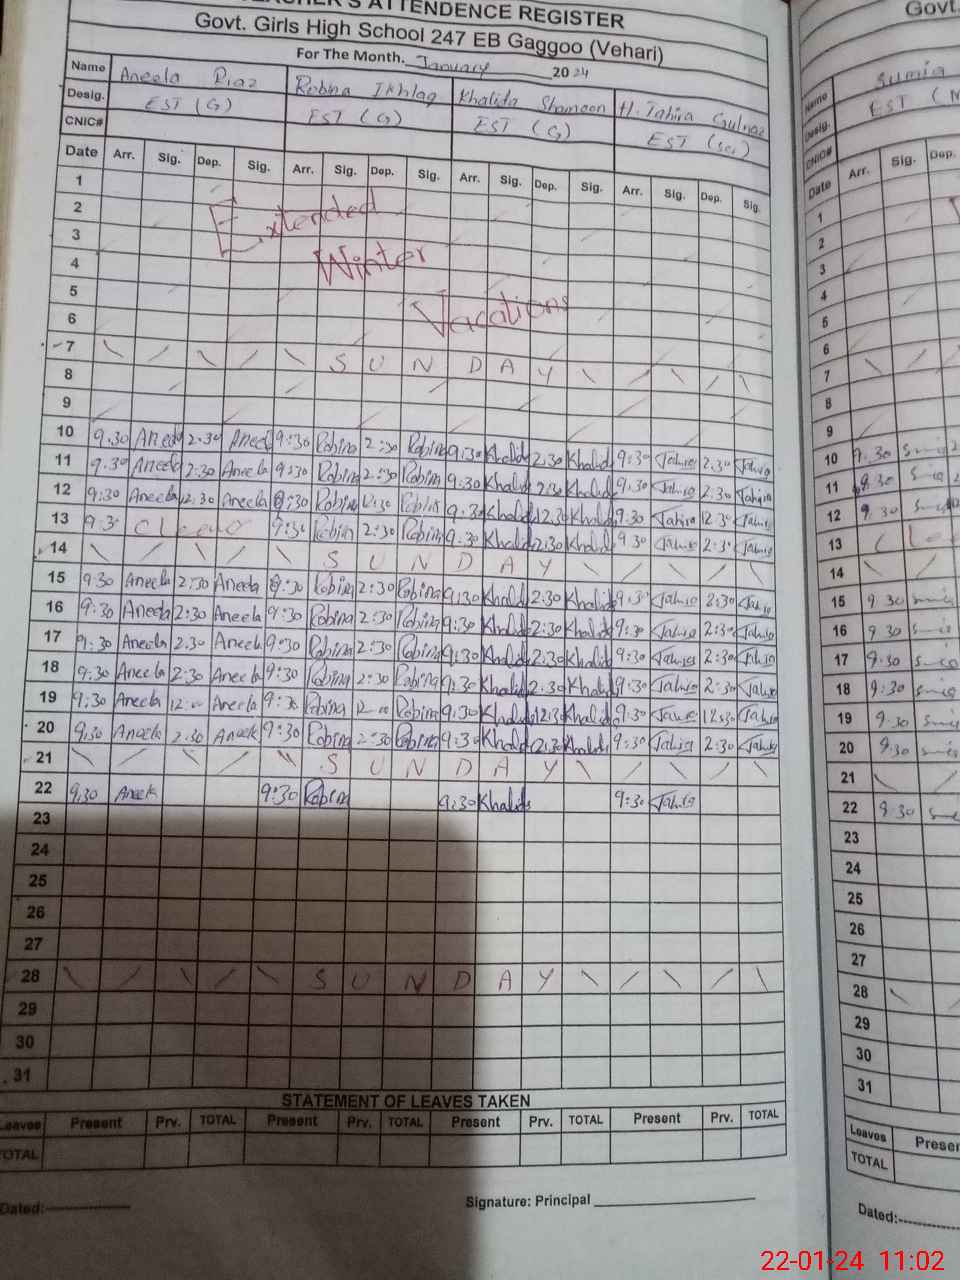 TEACHER'S ATTENDENCE REGISTER
Govt. Girls High School 247 EB Gaggoo (Vehari)
For The Month. January 2024
Name Aneela Riaz Robina Ikhlaq Khalida Shamoon H. Tahira Gulnaz
Desig. EST (G) EST (G) EST (G) EST (Sci)
CNIC#
Date Arr. Sig. Dep. Sig. Arr. Sig. Dep. Sig. Arr. Sig. Dep. Sig. Arr. Sig. Dep. Sig.
1
2 Extended
3
4 Winter
5
6 Vacations
7 SUNDAY
8
9
10 9.30 Aneela 2.30 Aneela 9:30 Robina 2:30 Robina 9:30 Khalida 2.30 Khalida 9:30 Tahira 2:30 Tahira
11 9.30 Aneela 2:30 Aneela 9:30 Robina 2:30 Robina 9:30 Khalida 2:30 Khalida 9:30 Tahira 2:30 Tahira
12 9:30 Aneela 12:30 Aneela 9:30 Robina 12:30 Robina 9:30 Khalida 12:30 Khalida 9:30 Tahira 12:30 Tahira
13 9:3 C Leave 9:30 Robina 2:30 Robina 9:30 Khalida 2:30 Khalida 9:30 Tahira 2:30 Tahira
14 SUNDAY
15 9:30 Aneela 2:30 Aneela 9:30 Robina 2:30 Robina 9:30 Khalida 2:30 Khalida 9:30 Tahira 2:30 Tahira
16 9:30 Aneela 2:30 Aneela 9:30 Robina 2:30 Robina 9:30 Khalida 2:30 Khalida 9:30 Tahira 2:30 Tahira
17 9:30 Aneela 2.30 Aneela 9:30 Robina 2:30 Robina 9:30 Khalida 2.30 Khalida 9:30 Tahira 2:30 Tahira
18 9:30 Aneela 2:30 Aneela 9:30 Robina 2:30 Robina 9:30 Khalida 2.30 Khalida 9:30 Tahira 2:30 Tahira
19 9:30 Aneela 12:00 Aneela 9:30 Robina 12:00 Robina 9:30 Khalida 12:30 Khalida 9:30 Tahira 12:30 Tahira
20 9:30 Aneela 2.30 Aneela 9:30 Robina 2:30 Robina 9:30 Khalida 2:30 Khalida 9:30 Tahira 2:30 Tahira
21 SUNDAY
22 9:30 Aneela 9:30 Robina 9:30 Khalida 9:30 Tahira
23
24
25
26
27
28 SUNDAY
29
30
31
STATEMENT OF LEAVES TAKEN
Leaves Present Prv. TOTAL Present Prv. TOTAL Present Prv. TOTAL Present Prv. TOTAL
TOTAL
Dated: Signature: Principal
Govt.
Name Sumia
Desig. EST
CNIC#
Date Arr. Sig. Dep.
1
2
3
4
5
6
7
8
9
10 9.30
11 9.30
12 9.30
13
14
15 9 30
16 9 30
17 9:30
18 9:30
19 9.30
20 9:30
21
22 9 30
23
24
25
26
27
28
29
30
31
Leaves Presen
TOTAL
Dated:
22-01-24 11:02